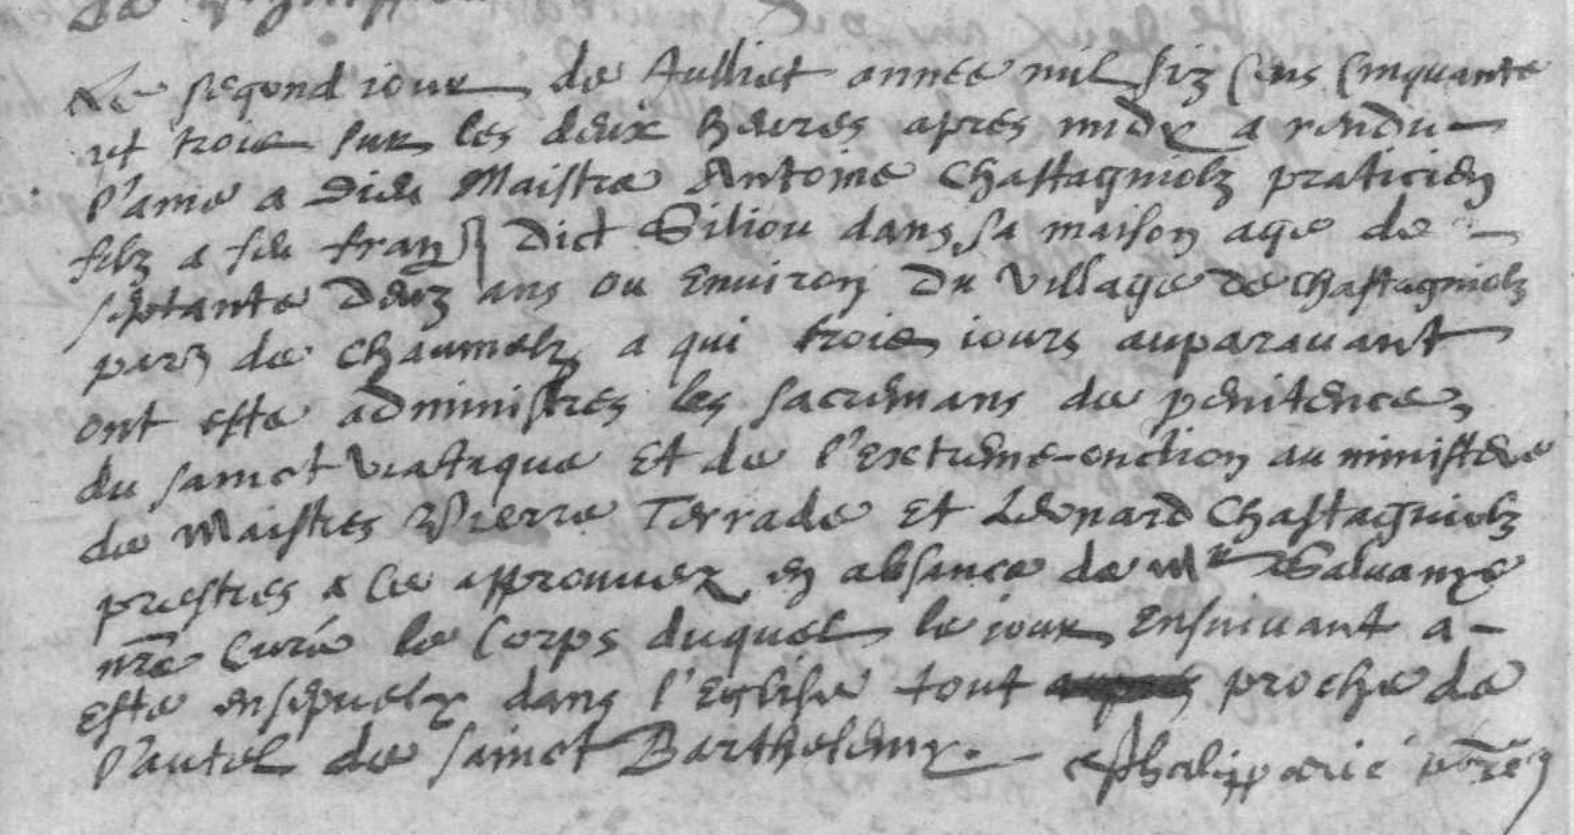 Le segond iour de Julliet annee mil siz cens cinquante
et trois sur les deux heures apres midy a rendu
l'ame a dieu Maistre Antoine Chastagniolz praticien
filz a feu franz dict Giliou dans sa maison age de
septante deuz ans ou environ du village de chastagniolz
parz de chaumelz a qui trois iours auparauant
ont este administres les sacremans de penitence
du sainct viatique et de l'extreme-onction au ministere
de Maistres Pierre Terrade et Leonard Chastagniolz
prestres a ce approuuez en absance de Mr Saluanye
nre curé le corps duquel le iour ensuiuant a
este ensepuely dans l'eglise tout proche de
l'autel de sainct Barthelemy.